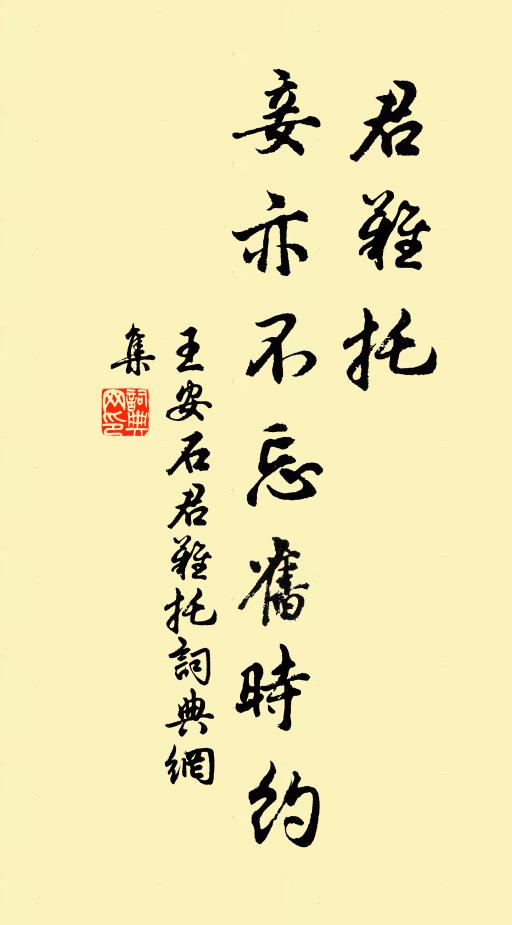 君難托
妾亦不忘舊時約
王安石君難托詞典網
集
詞典
网印